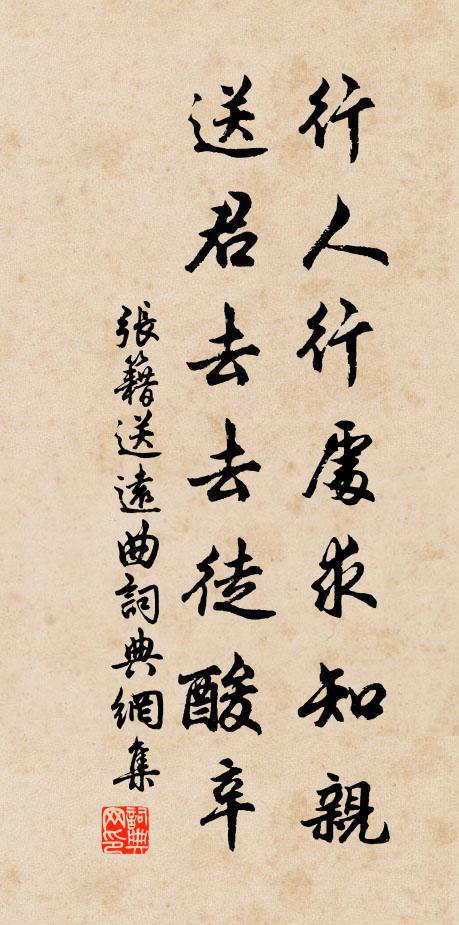 行人行處求知親
送君去去徒酸辛
張籍送遠曲詞典網集
詞典網印